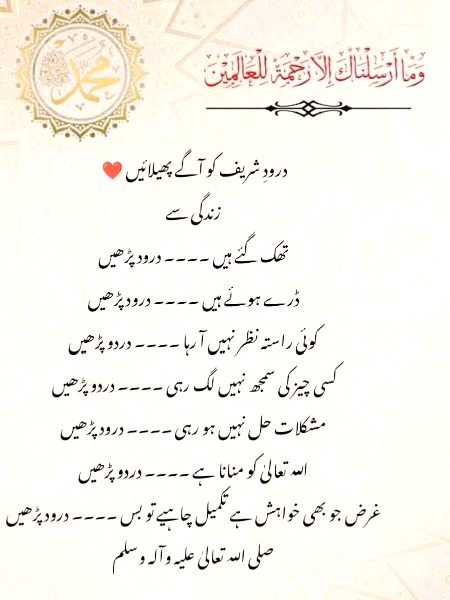 محمد
وَمَا أَرْسَلْنَاكَ إِلَّا رَحْمَةً لِلْعَالَمِينَ
درودِ شریف کو آگے پھیلائیں ❤️
زندگی سے
تھک گئے ہیں ۔۔۔۔ درود پڑھیں
ڈرے ہوئے ہیں ۔۔۔۔ درود پڑھیں
کوئی راستہ نظر نہیں آ رہا ۔۔۔۔ دردو پڑھیں
کسی چیز کی سمجھ نہیں لگ رہی ۔۔۔۔ دردو پڑھیں
مشکلات حل نہیں ہو رہی ۔۔۔۔ درود پڑھیں
اللہ تعالیٰ کو منانا ہے ۔۔۔۔ دردو پڑھیں
غرض جو بھی خواہش ہے تکمیل چاہیے تو بس ۔۔۔۔ درود پڑھیں
صلی اللہ تعالیٰ علیہ وآلہ وسلم